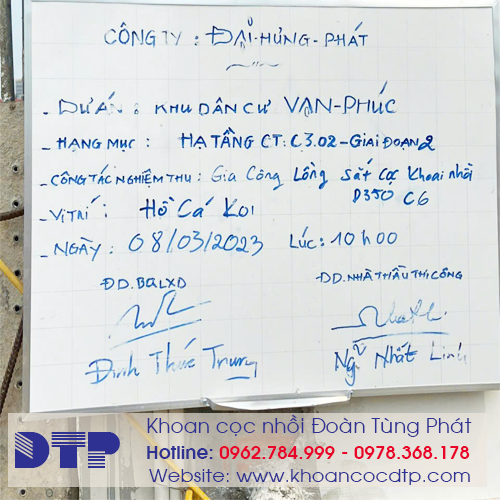 CÔNG TY : ĐẠI-HƯNG-PHÁT
- DỰ ÁN : KHU DÂN CƯ VẠN-PHÚC
- HẠNG MỤC : HẠ TẦNG CT: C3.02-GIAI ĐOẠN 2
- CÔNG TÁC NGHIỆM THU : Gia Công Lồng Sắt Cọc Khoan nhồi
D350 C6
- VỊ TRÍ : Hồ Cá Koi
- NGÀY : 08/03/2023 LÚC: 10h00
ĐD.BQLXD
ĐD.NHÀ THẦU THI CÔNG
Đinh Thúc Trung
Nhất Linh
DTP
Khoan cọc nhồi Đoàn Tùng Phát
Hotline: 0962.784.999 - 0978.368.178
Website: www.khoancocdtp.com